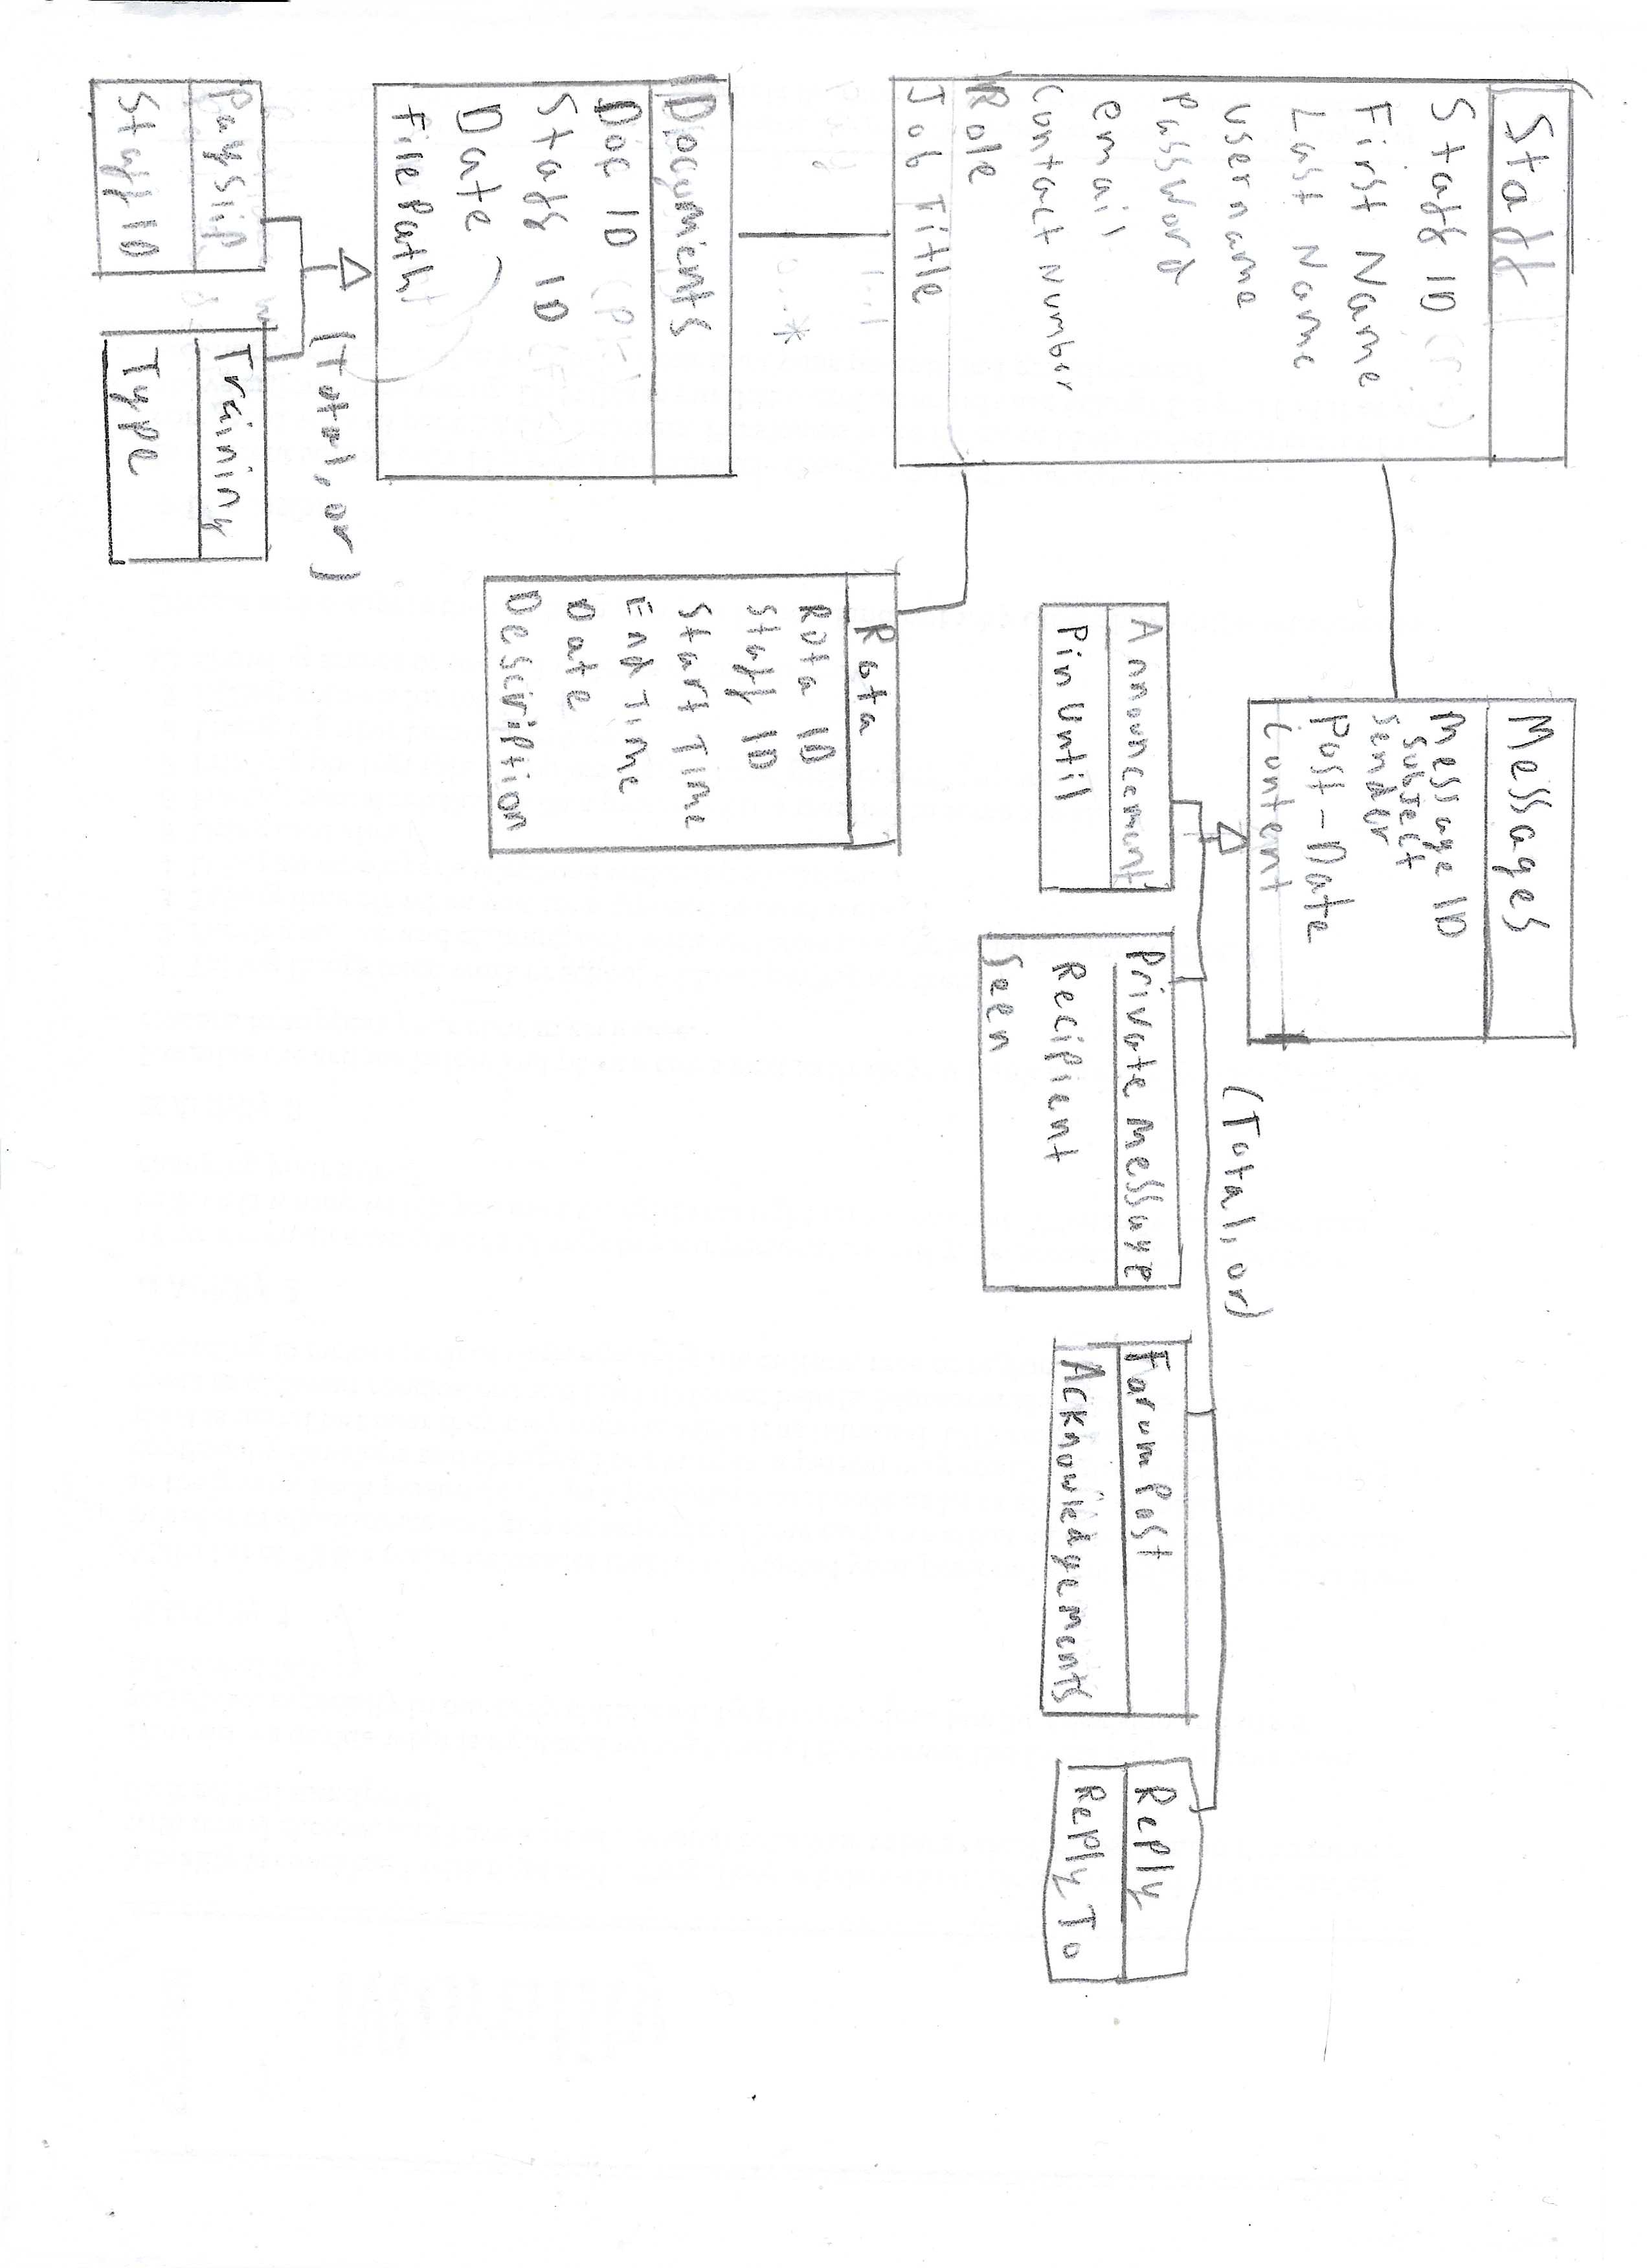 Staff
Staff ID
First Name
Last Name
username
Password
email
Contact Number
Role
Job Title
Messages
Message ID
Subject
Sender
Post-Date
Content
(Total, or)
Announcement
Pin Until
Private Message
Recipient
Seen
Forum Post
Acknowledgements
Reply
Reply To
1..1
0...*
Rota
Rota ID
Staff ID
Start Time
End Time
Date
Description
Documents
Doc ID (PK)
Staff ID
Date
File Path
(Total, or)
Payslip
Staff ID
Training
Type